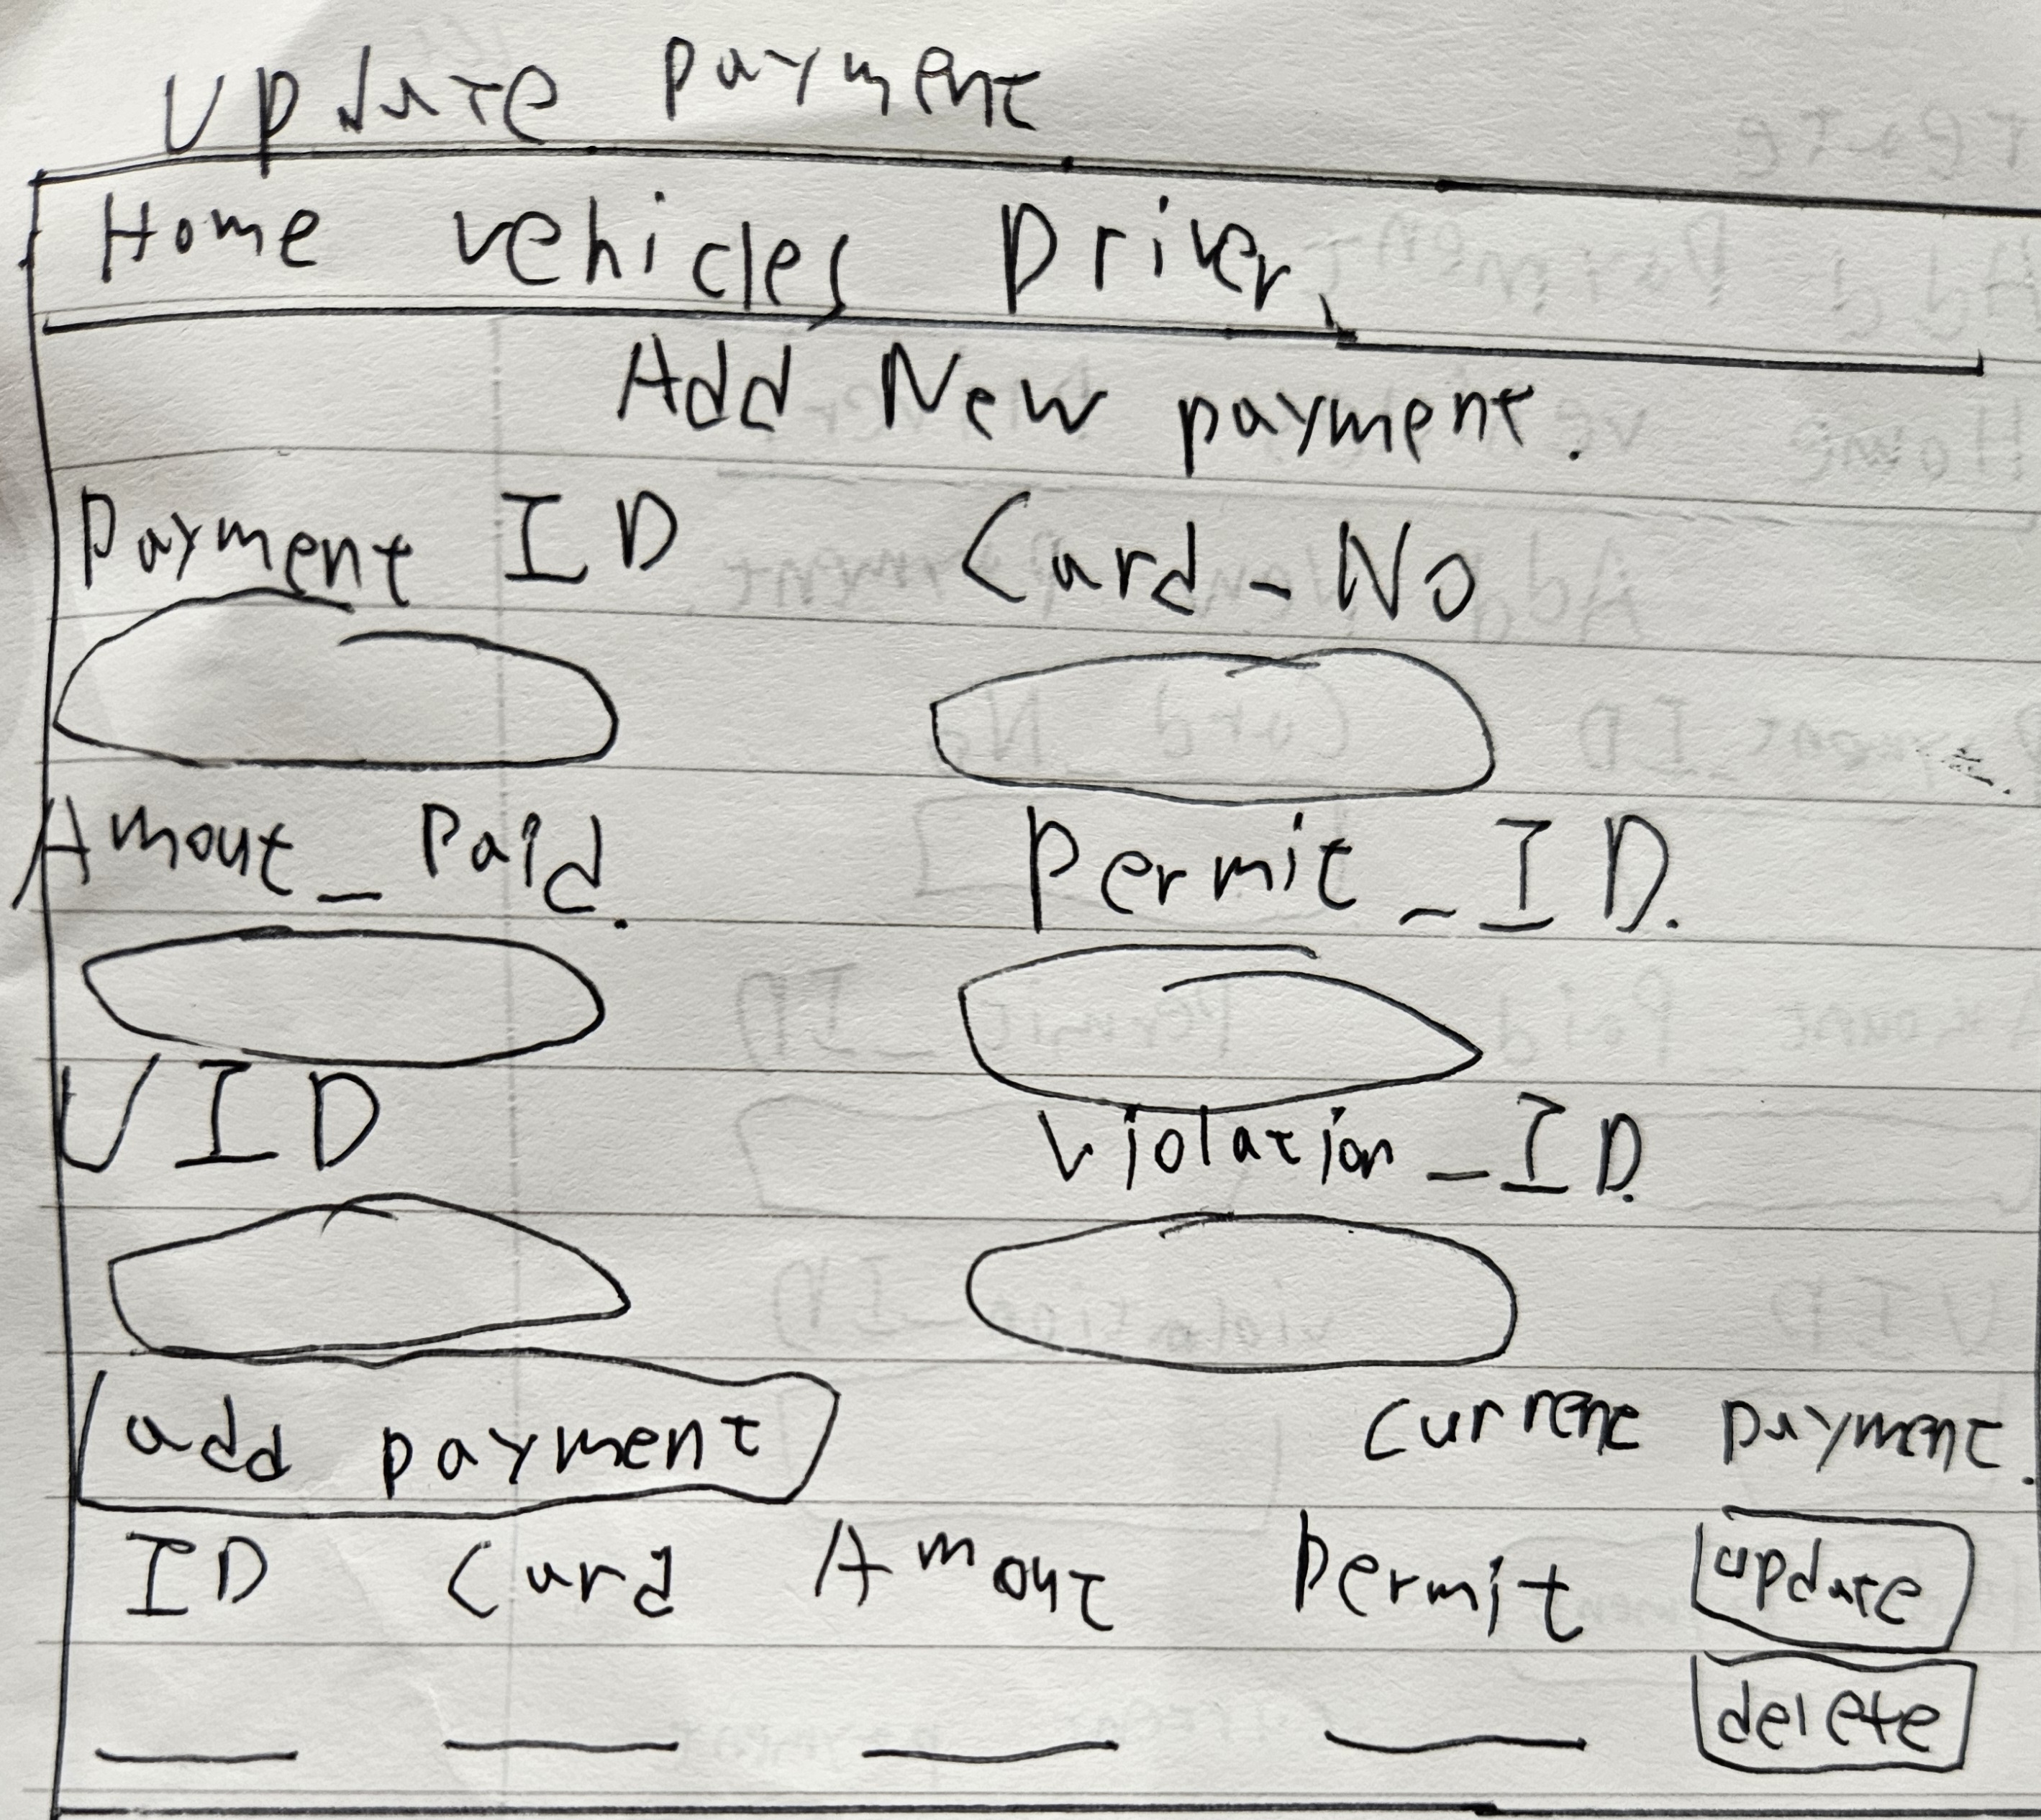 Update payment
Home vehicles Driver
Add New payment.
Payment ID Card_No
Amout_Paid. Permit_ID.
UID Violation_ID.
add payment current payment.
ID Card Amout Permit update
delete